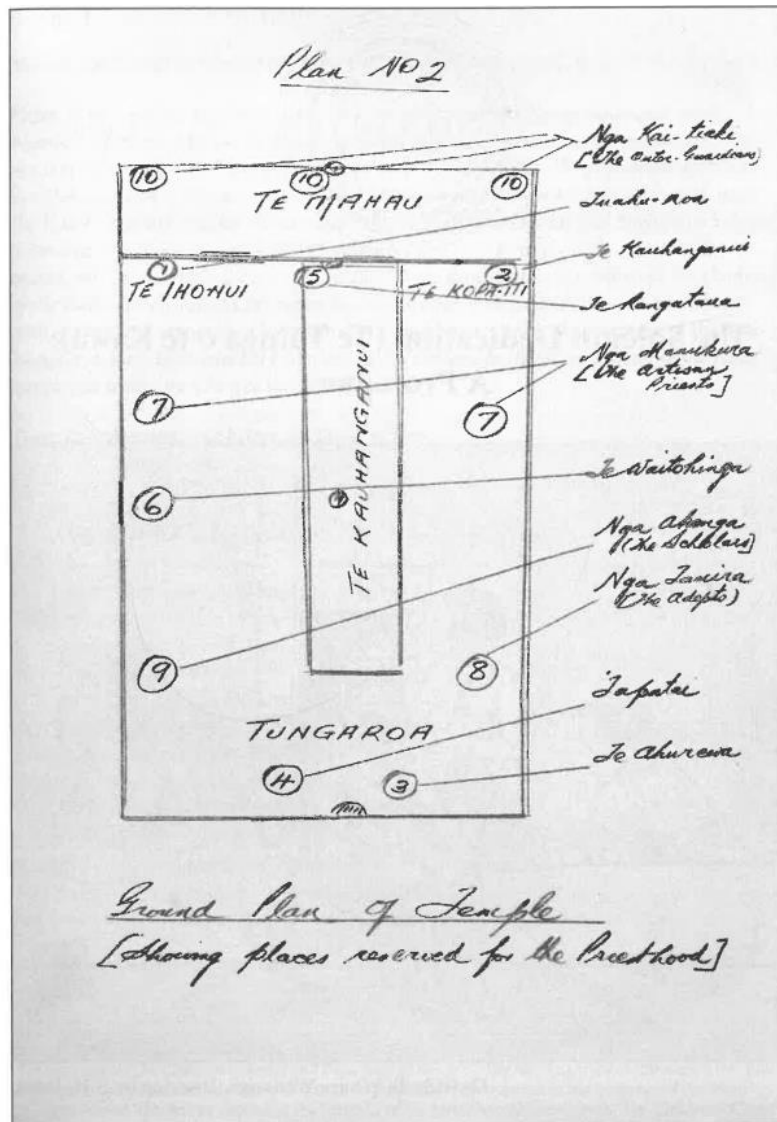 Plan No 2
Nga Kai-tiaki
[The Outer-Guardians]
10 10 10
TE MAHAU
Tuahu-moa
Te Kauhanganui
1 5 2
TE IHONUI TE KOPA-ITI
Te Rangataua
Nga Manukura
[The Artisan
Priests]
7 7
TE KAUHANGANUI
6
Te Waitohinga
Nga Akonga
(The Scholars)
Nga Tauira
(The Adepts)
9 8
TUNGAROA
Tapatai
4 3
Te Ahurewa
Ground Plan of Temple
[Showing places reserved for the Priesthood]